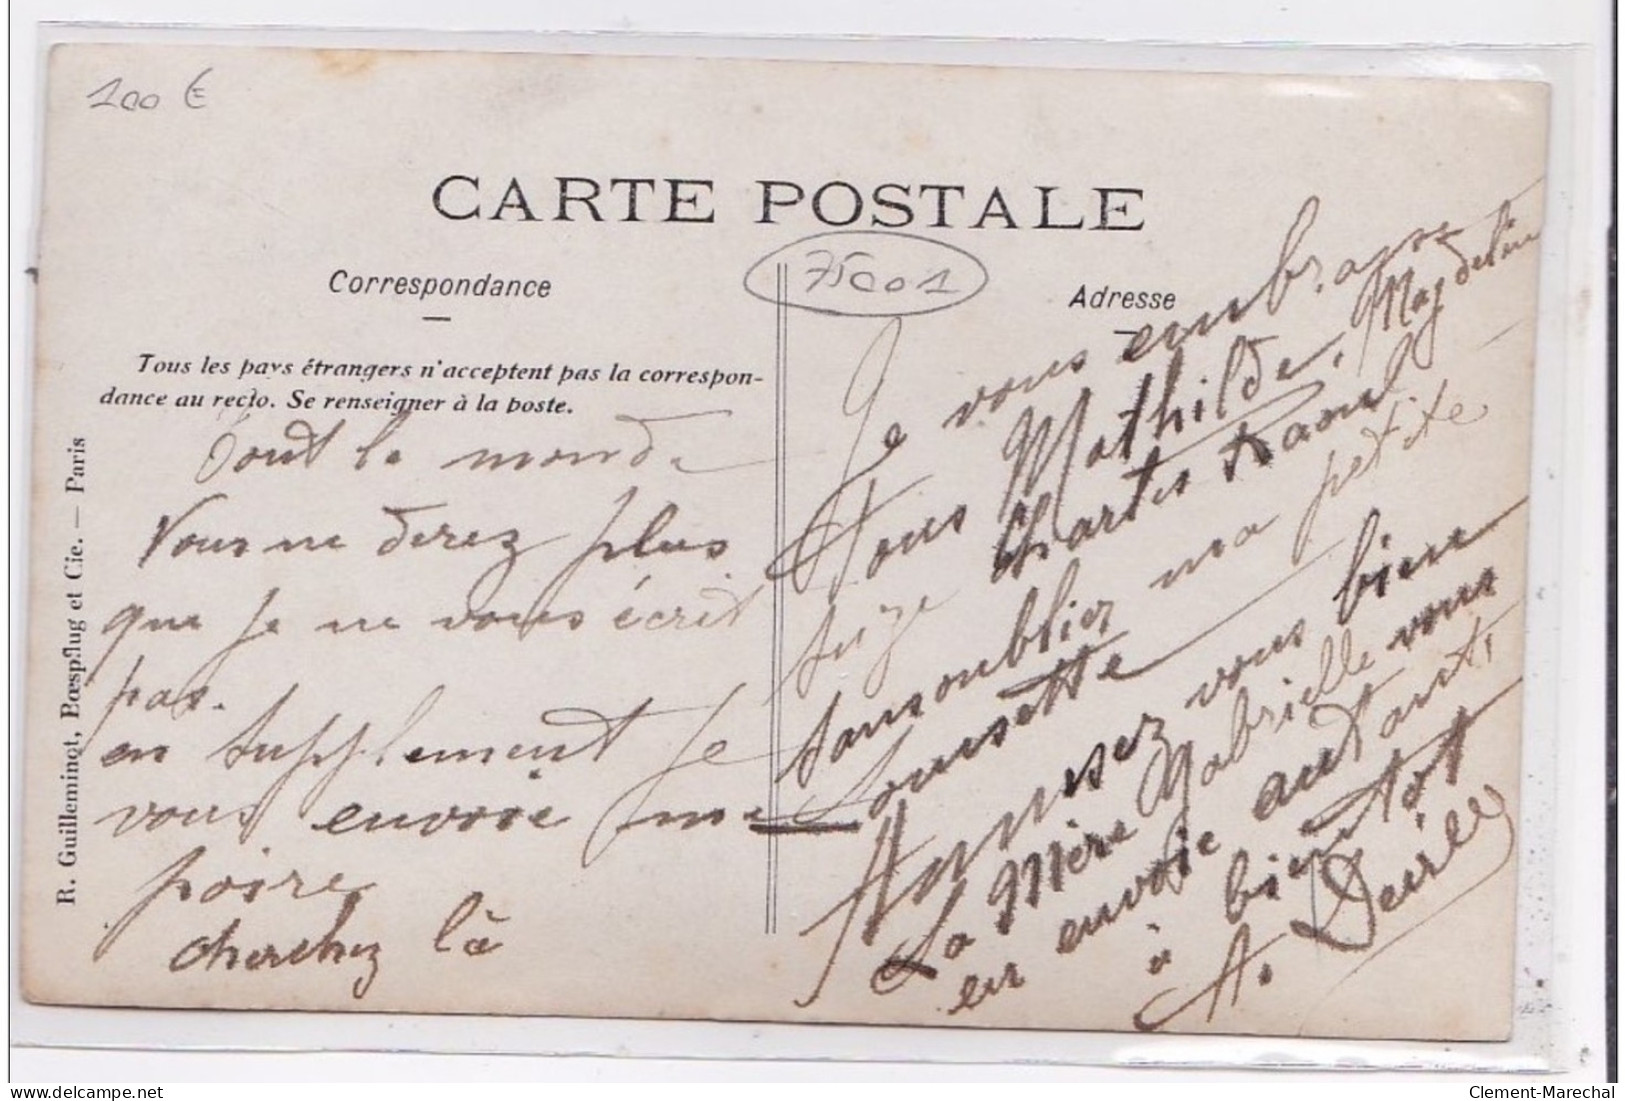 100 €
CARTE POSTALE
75001
Correspondance
Adresse
Tous les pays étrangers n'acceptent pas la correspon-
dance au recto. Se renseigner à la poste.
R. Guilleminot, Bœspflug et Cie. — Paris
Tout le monde
Vous ne direz plus
que je ne vous écrit
pas.
en supplement je
vous envoie ma
poire
cherchez là
Je vous embrasse
tous Mathilde, Magdeleine
Suze Charles Raoul
sans oublier ma petite
Lousette
Amusez vous bien
La Mère Gabrielle vous
en envoie autant,
à bientôt
A.
Clement-Marechal